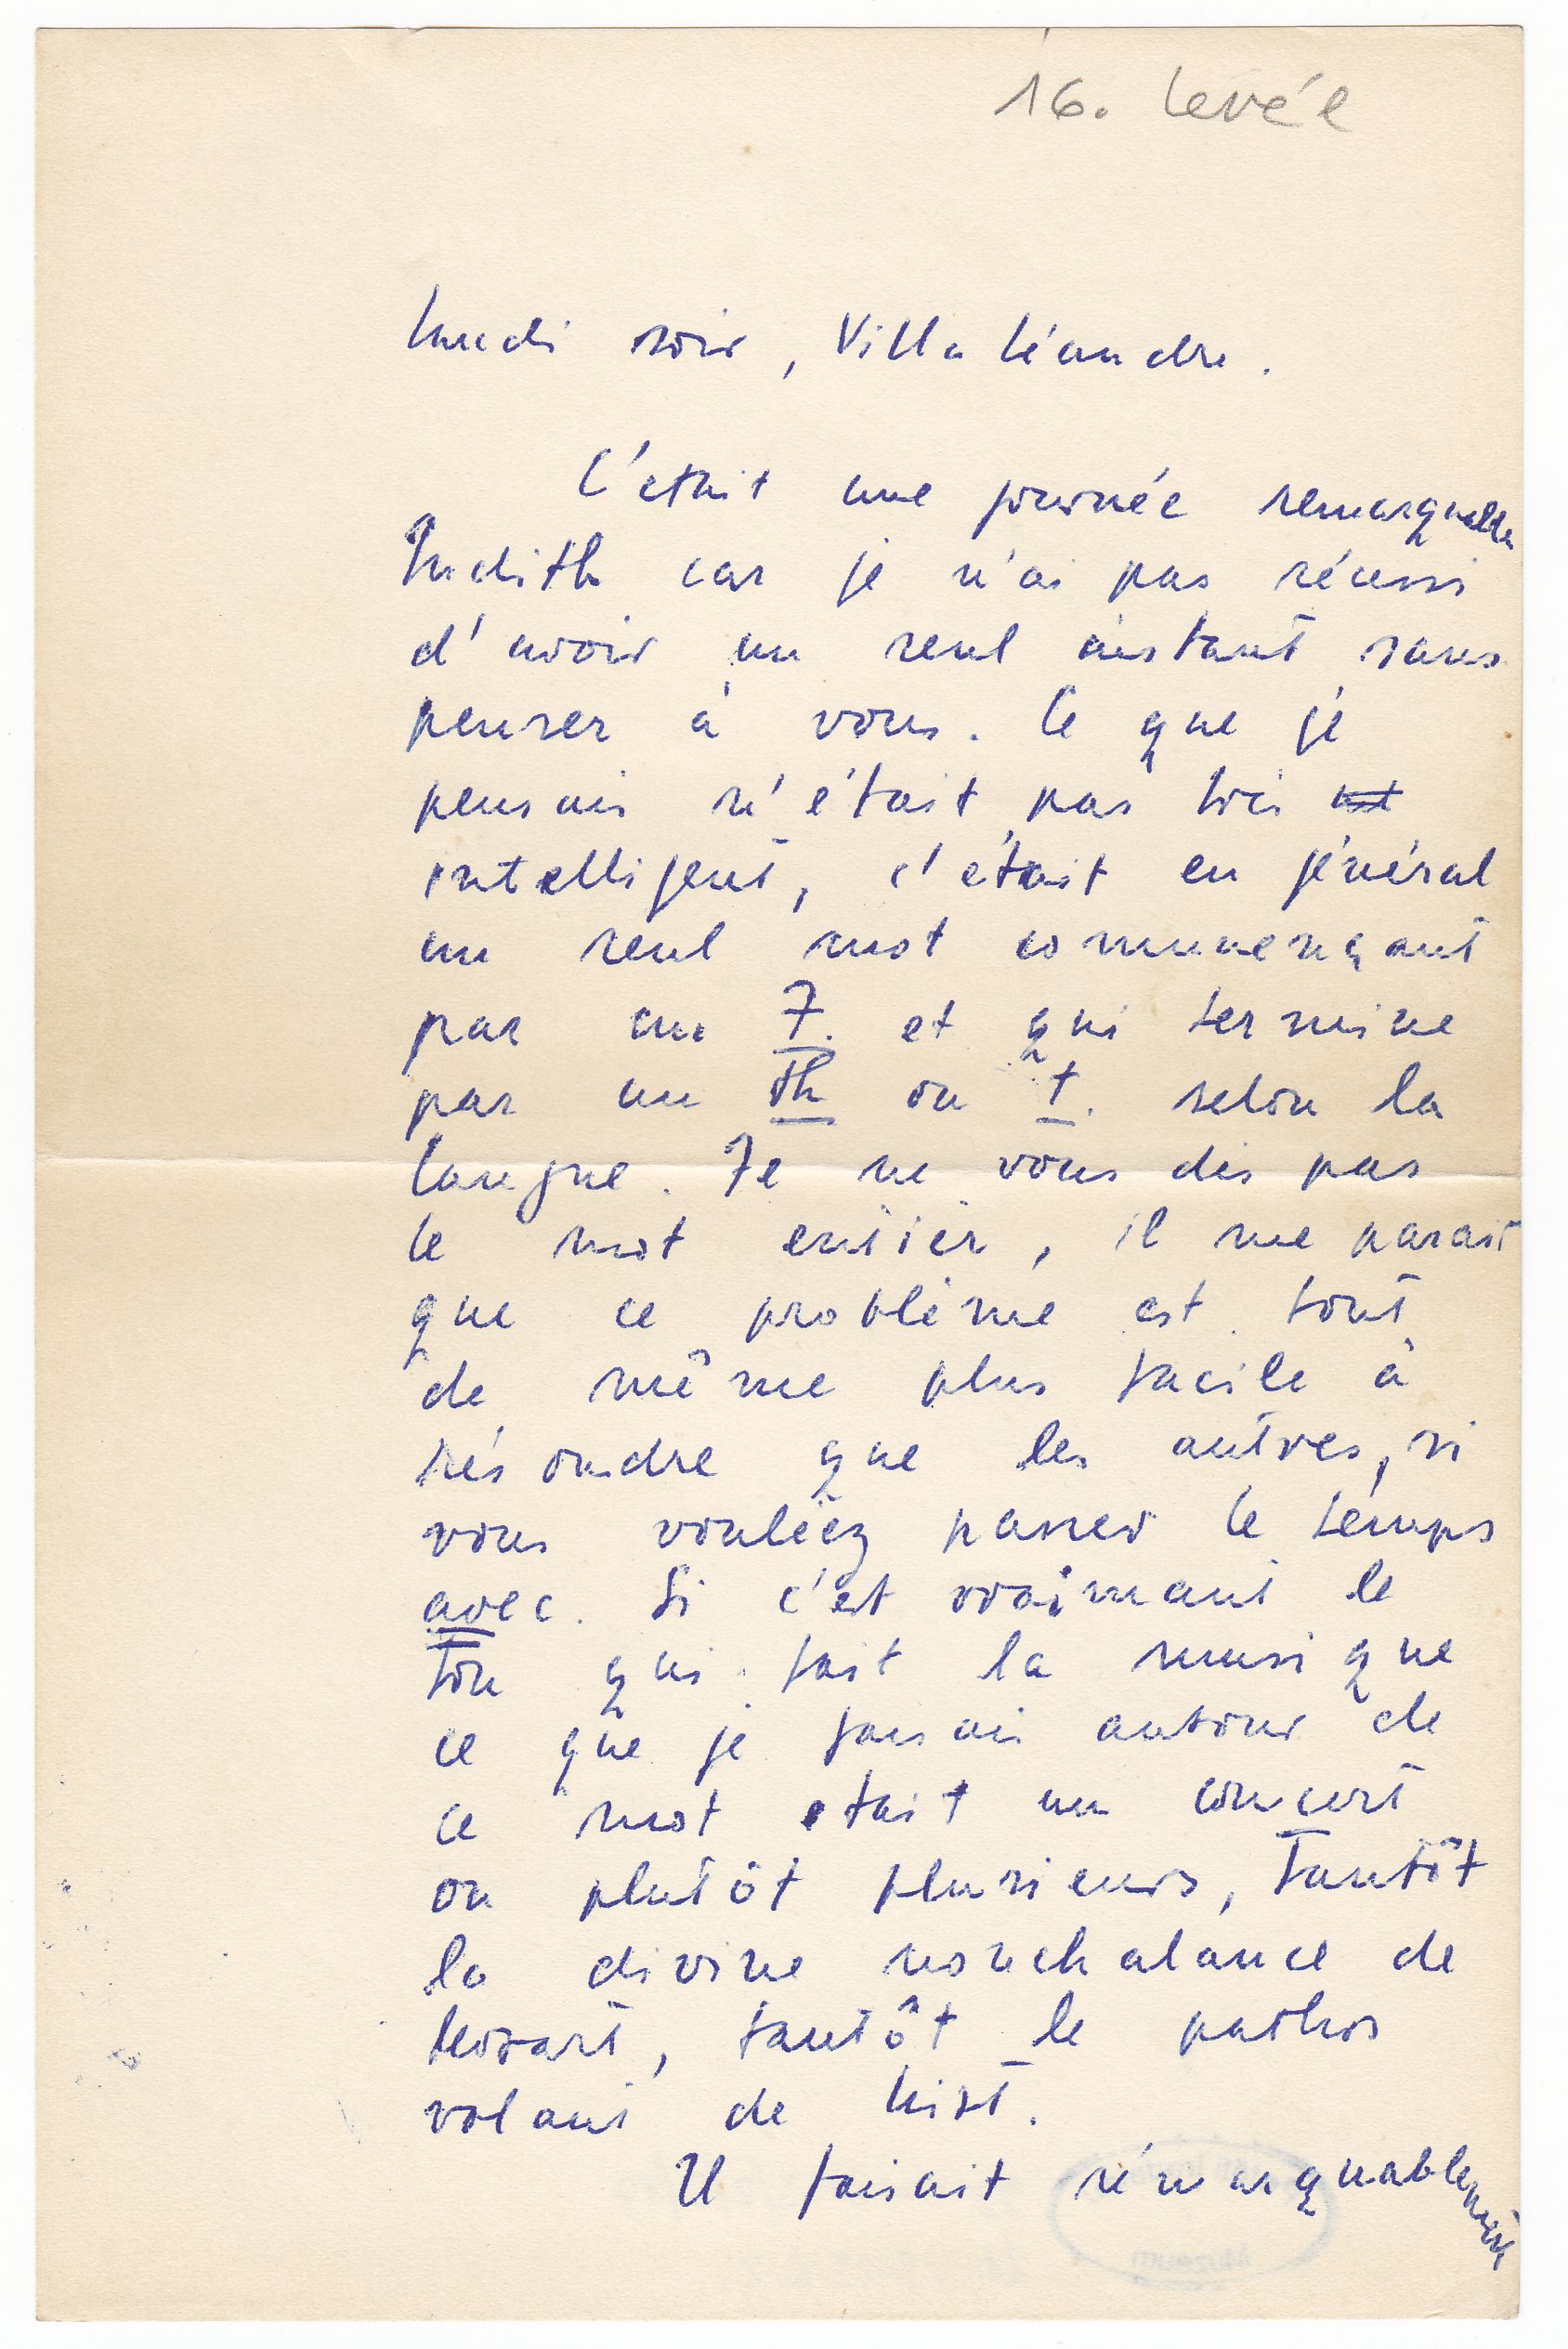 16. levée
Lundi soir, Villa Léandre.
C'était une journée remarquable
Judith car je n'ai pas réussi
d'avoir un seul instant sans
penser à vous. Ce que je
pensais n'était pas très
intelligent, c'était en général
un seul mot commençant
par un J. et qui termine
par un th ou t. selon la
langue. Je ne vous dis pas
le mot entier, il me parait
que ce problème est tout
de même plus facile à
résoudre que les autres, si
vous vouliez passer le temps
avec. Si c'est vraimant le
ton qui fait la musique
ce que je faisais autour de
ce mot etait un concert
ou plutôt plusieurs, tantôt
la divine nonchalance de
Mozart, tantôt le pathos
volant de Liszt.
Il faisait rémarquablement